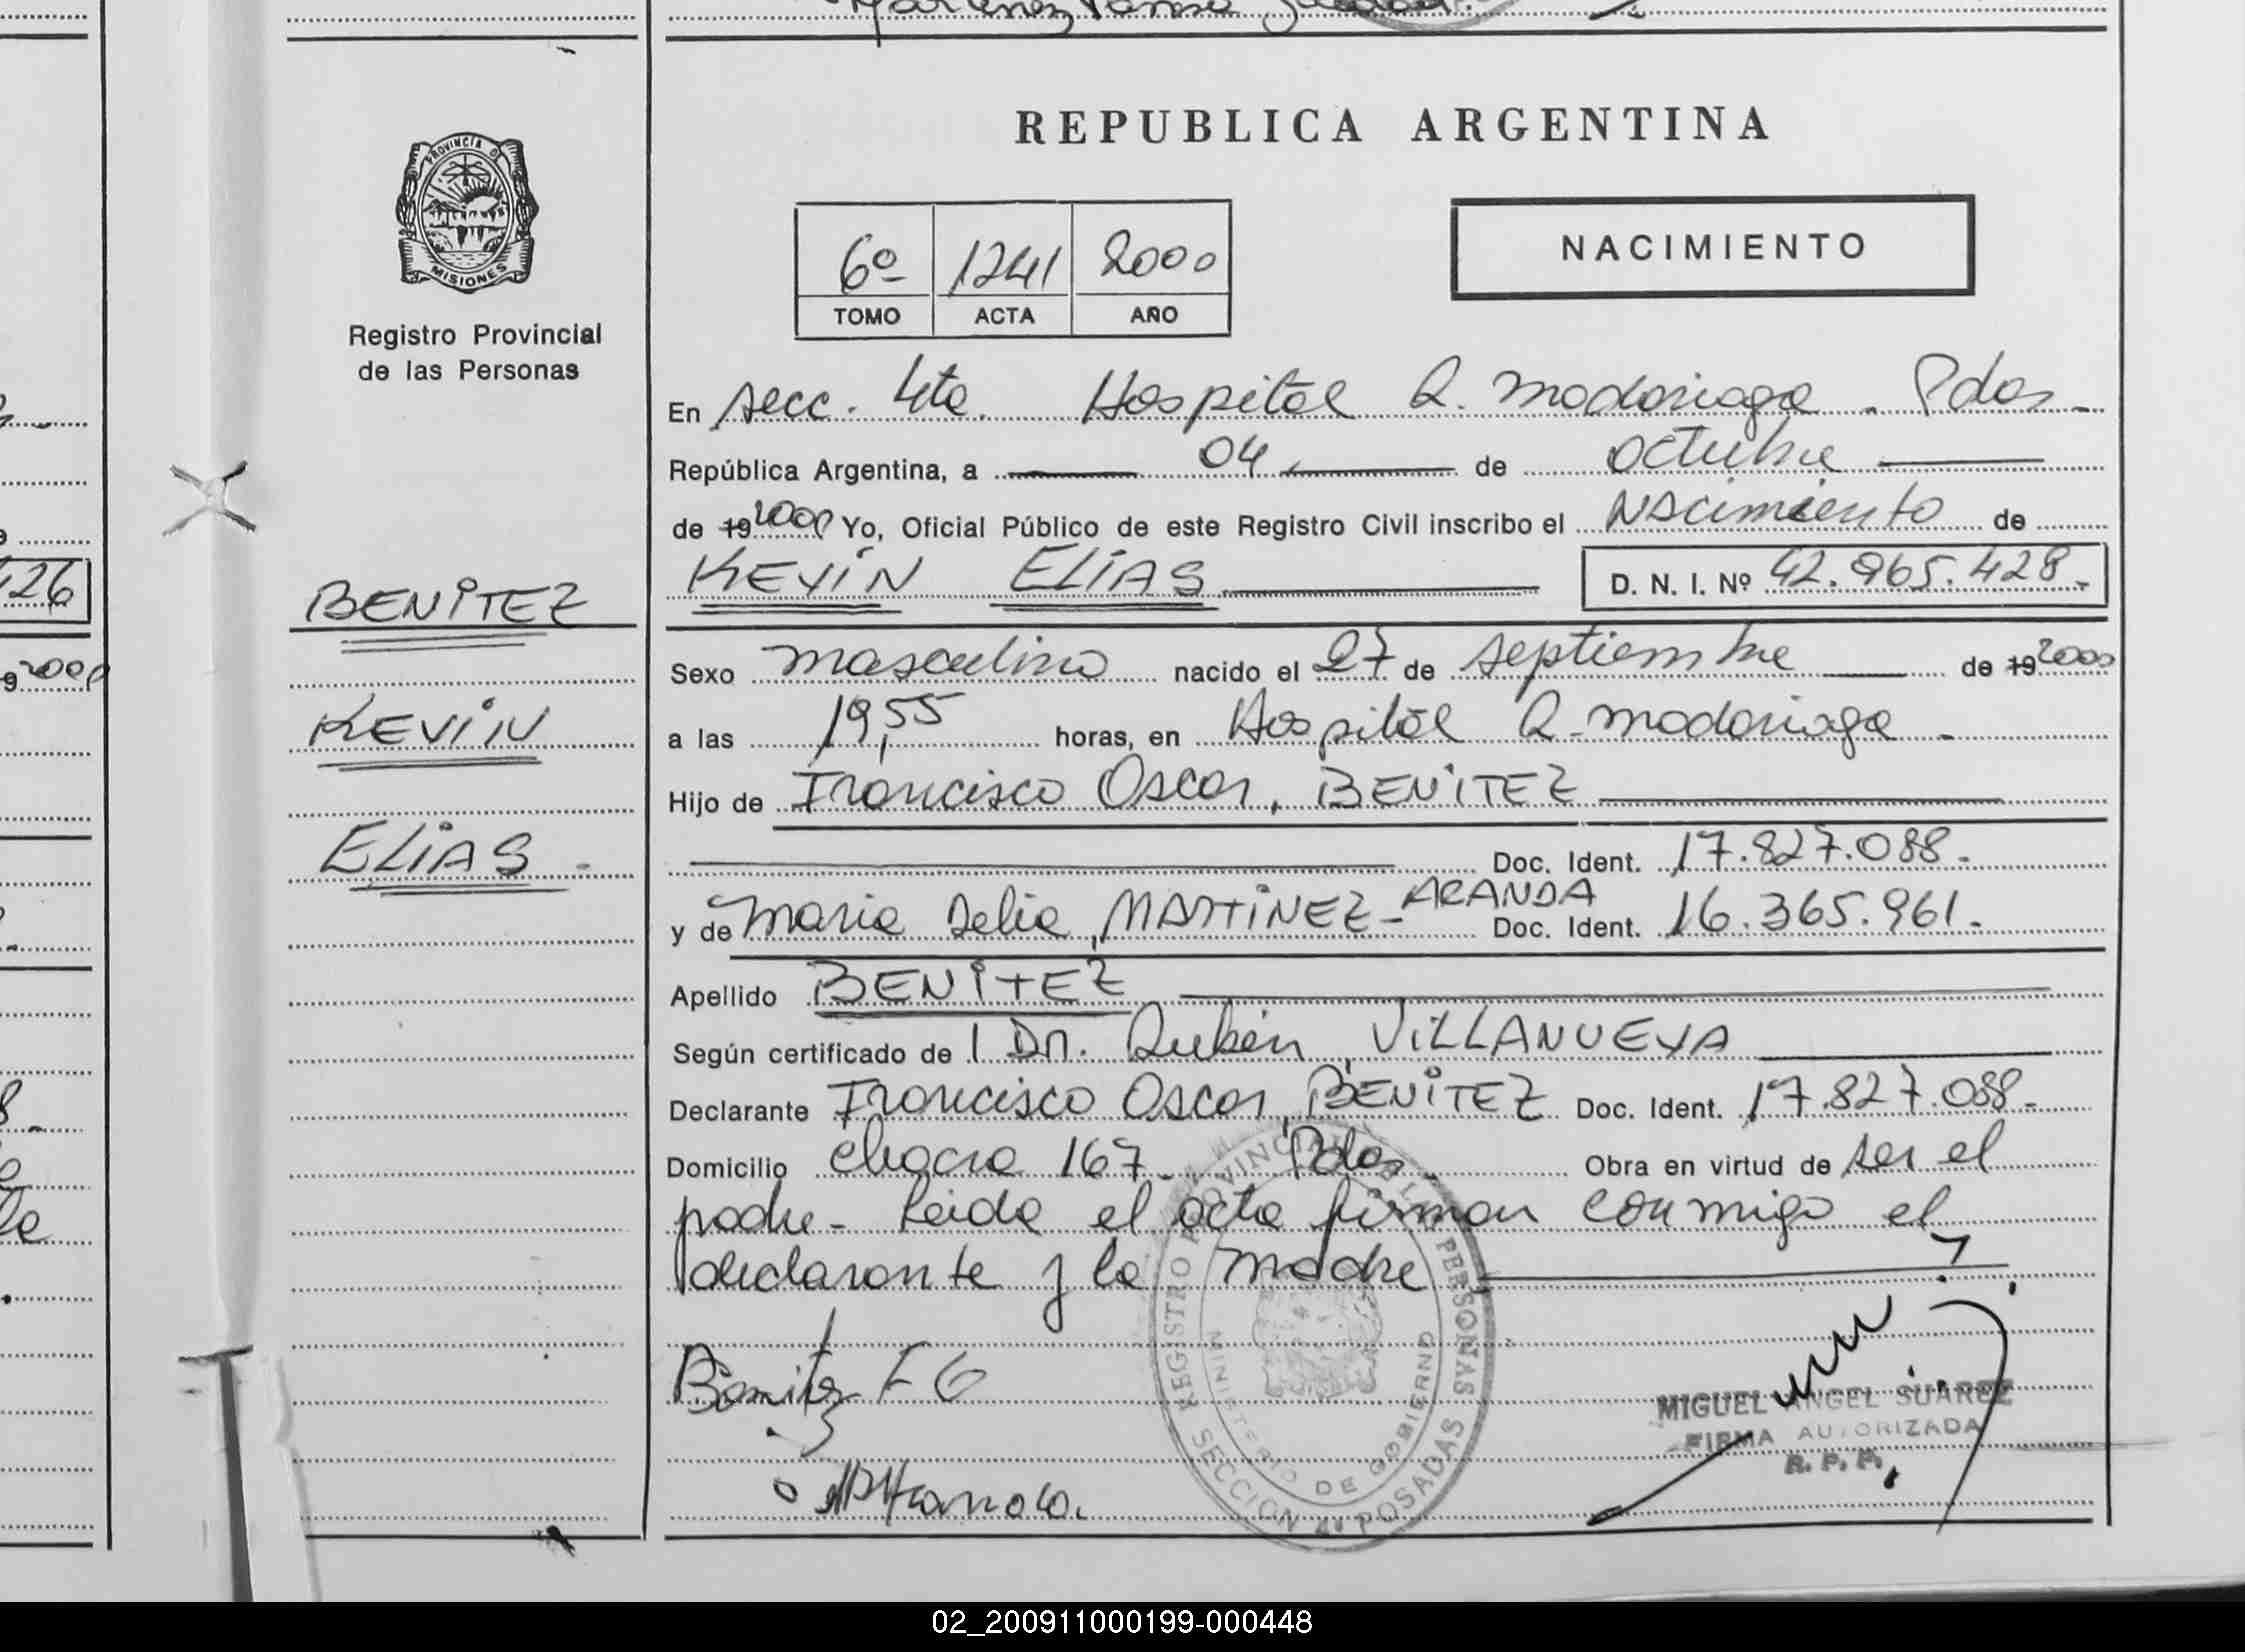 REPUBLICA ARGENTINA
PROVINCIA DE
MISIONES
Registro Provincial
de las Personas
6º 1241 2000
TOMO ACTA AÑO
NACIMIENTO
En secc. 4ta. Hospital R. Madariaga - Pdas -
República Argentina, a 04 de octubre
de 19 2000 Yo, Oficial Público de este Registro Civil inscribo el Nacimiento de
KEVIN ELIAS D. N. I. Nº 42.965.428.-
BENITEZ
KEVIN
ELIAS -
Sexo masculino nacido el 27 de septiembre de 19 2000
a las 19,55 horas, en Hospital R. Madariaga -
Hijo de Francisco Oscar, BENITEZ
Doc. Ident. 17.827.088.-
y de Maria Delia, MARTINEZ - ARANDA Doc. Ident. 16.365.961.-
Apellido BENITEZ
Según certificado de Dr. Rubén, VILLANUEVA
Declarante Francisco Oscar, BENITEZ Doc. Ident. 17.827.088.-
Domicilio chacra 167 - Pdas. Obra en virtud de ser el
padre - Leida el acta firman conmigo el
declarante y la madre
REGISTRO PROVINCIAL DE LAS PERSONAS
MINISTERIO DE GOBIERNO
SECCION 4ª POSADAS
MIGUEL ANGEL SUAREZ
FIRMA AUTORIZADA
R. P. P.
426
19 2000
02_200911000199-000448